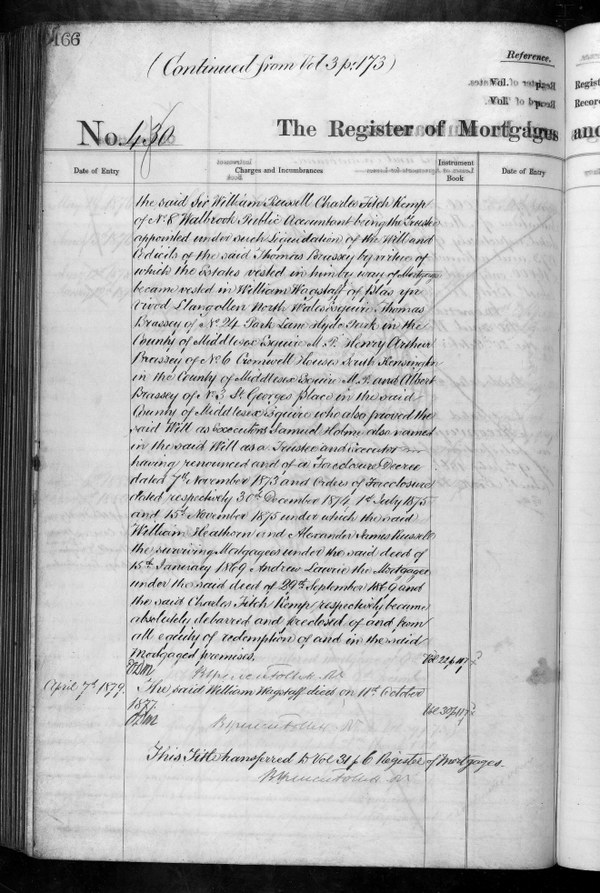 166
(Continued from Vol 3 p. 173)
Reference.
Vol. p.
Vol. p.
No. 430 The Register of Mortgages and
Date of Entry
Charges and Incumbrances
Instrument Book
Date of Entry
the said Sir William Russell Charles Fitch Kemp
of No. 8 Walbrook Public Accountant being the Trustee
appointed under such Liquidation of the Will and
Codicils of the said Thomas Brassey by virtue of
which the Estates vested in him by way of Mortgage
became vested in William Wagstaff of Plas yn
vivod Llangollen North Wales Esquire Thomas
Brassey of No. 24 Park Lane Hyde Park in the
County of Middlesex Esquire M.P. Henry Arthur
Brassey of No. 6 Cromwell Houses South Kensington
in the County of Middlesex Esquire M.P. and Albert
Brassey of No. 3 St Georges Place in the said
County of Middlesex Esquire who also proved the
said Will as Executors Samuel Holme also named
in the said Will as a Trustee and Executor
having renounced and of a Foreclosure Decree
dated 7th November 1873 and Orders of Foreclosure
dated respectively 30th December 1874, 1st July 1875
and 15th November 1875 under which the said
William Heathorn and Alexander James Russell
the surviving Mortgagees under the said deed of
15th January 1869 Andrew Lawrie the Mortgagee
under the said deed of 29th September 1869 and
the said Charles Fitch Kemp respectively became
absolutely debarred and foreclosed of and from
all equity of redemption of and in the said
Mortgaged premises.
Vol 22 p 117
April 7th 1879.
The said William Wagstaff died on 11th October
1877.
Vol 30 p 117
This Title transferred to Vol 31 p 6 Register of Mortgages.